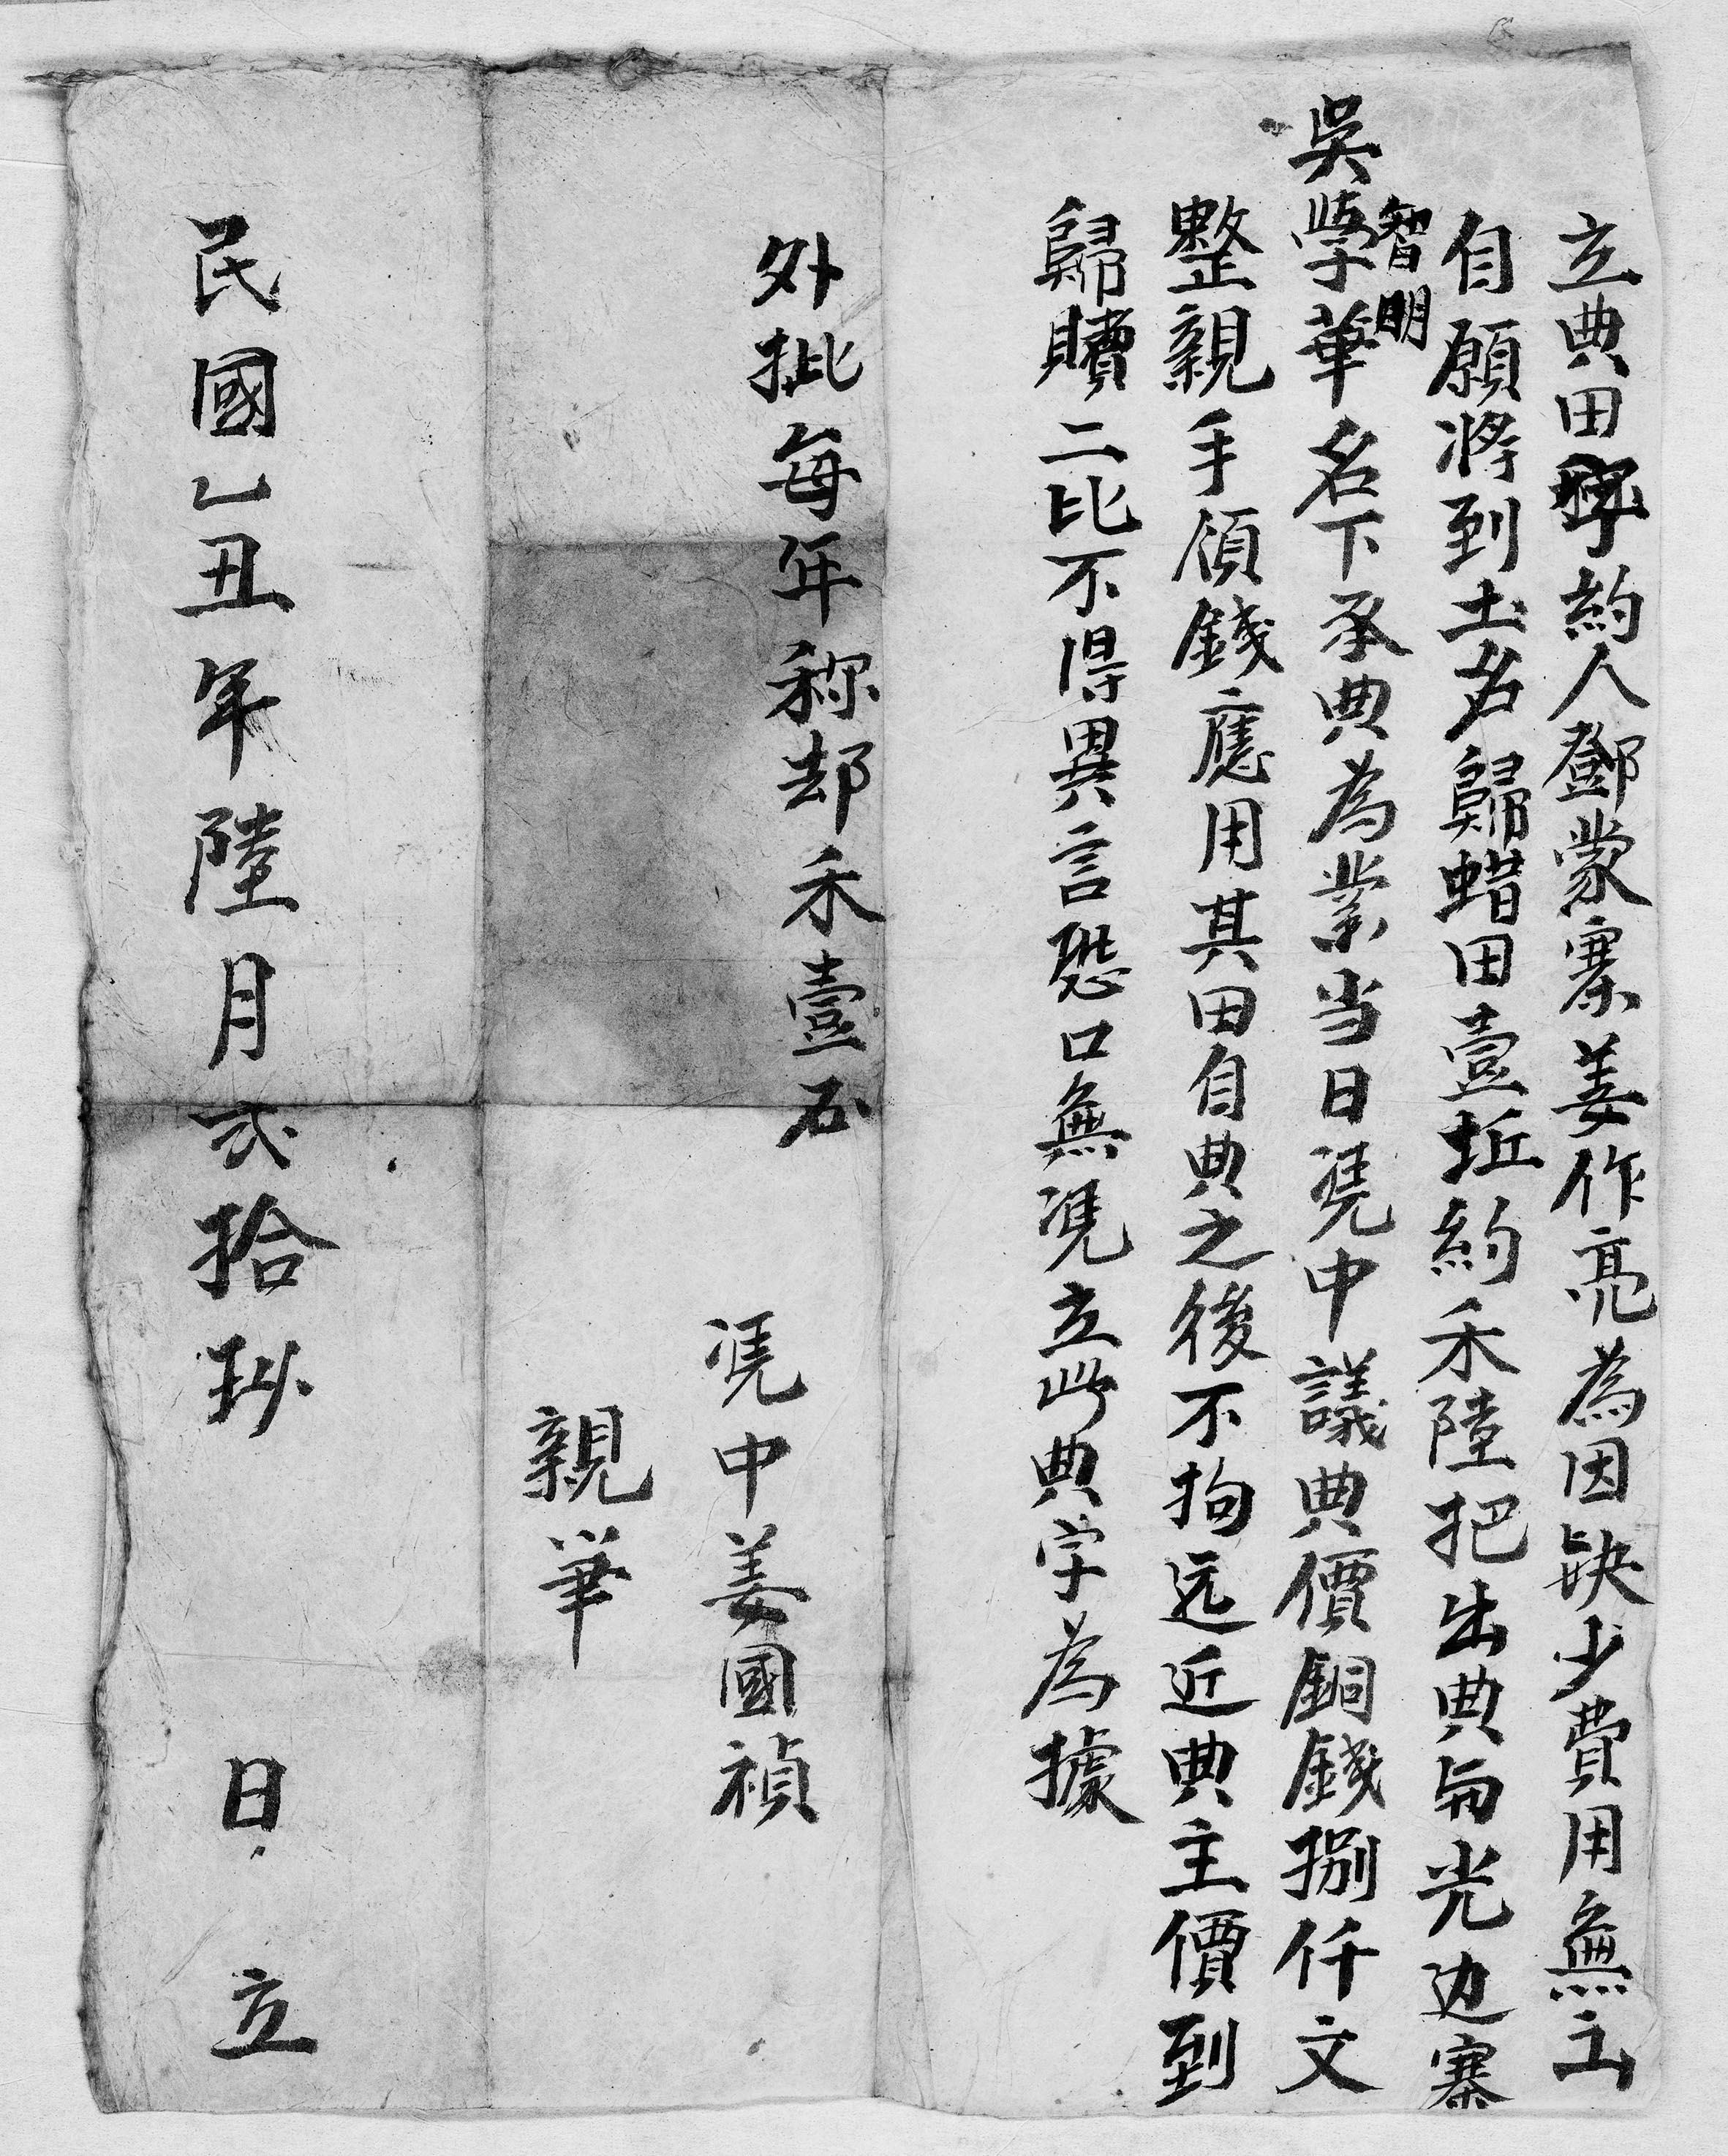 立典田字約人鄧蒙寨姜作亮為因缺少費用無出
自願將到土名歸蜡田壹坵約禾陸把出典与光边寨
吳學華智明名下承典為業当日凴中議典價銅錢捌仟文
整親手領錢應用其田自典之後不拘远近典主價到
歸贖二比不得異言恐口無凴立此典字為據
外批每年称却禾壹石
凴中姜國禎
親筆
民國乙丑年陸月弍拾 日立